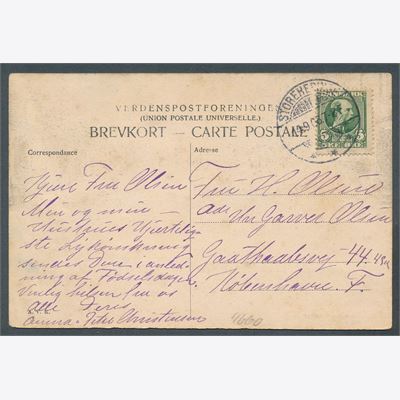 VERDENSPOSTFORENINGEN
(UNION POSTALE UNIVERSELLE.)
BREVKORT – CARTE POSTALE
Correspondance
Adresse
DANMARK
5 5
Kjære Frue Olsen
Min og min
Hustrues Hjertelig-
ste Lykønskning
sendes Dem i anled-
ning af Fødselsdagen
Venlig hilsen fra os
alle Deres
Anna Peter Christensen
Fru H. Olsen
adr Hr. Garver Olsen
44
København. F.
4660